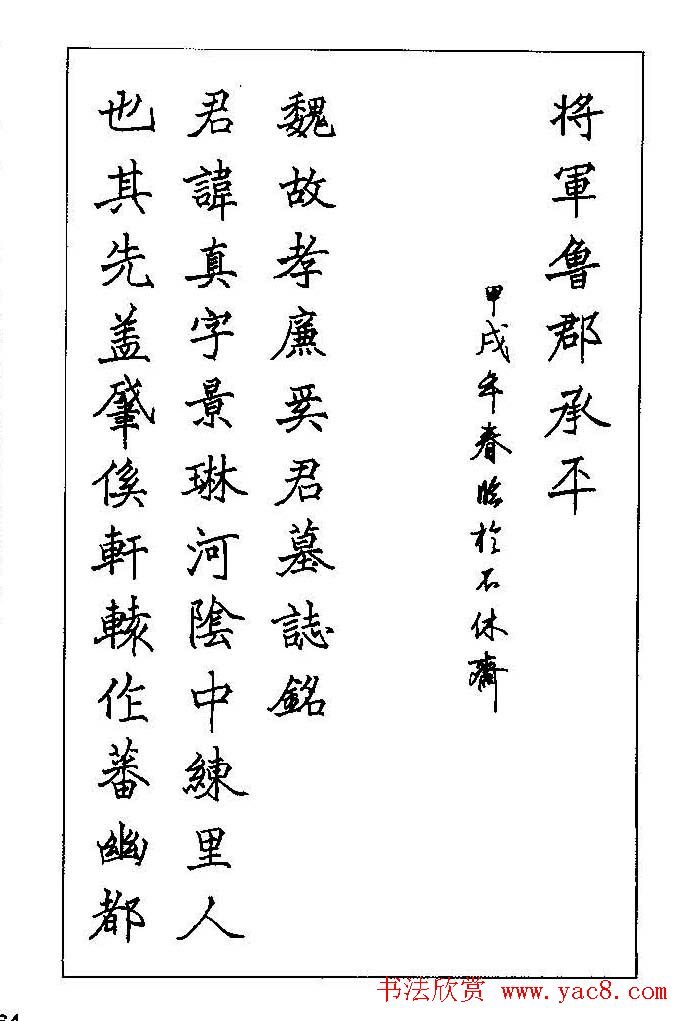 将軍魯郡承平
甲戌年春临於石休齋
魏故孝廉奚君墓誌銘
君諱真字景琳河陰中練里人
也其先盖肇傒軒轅作蕃幽都
64
书法欣赏 www.yac8.com